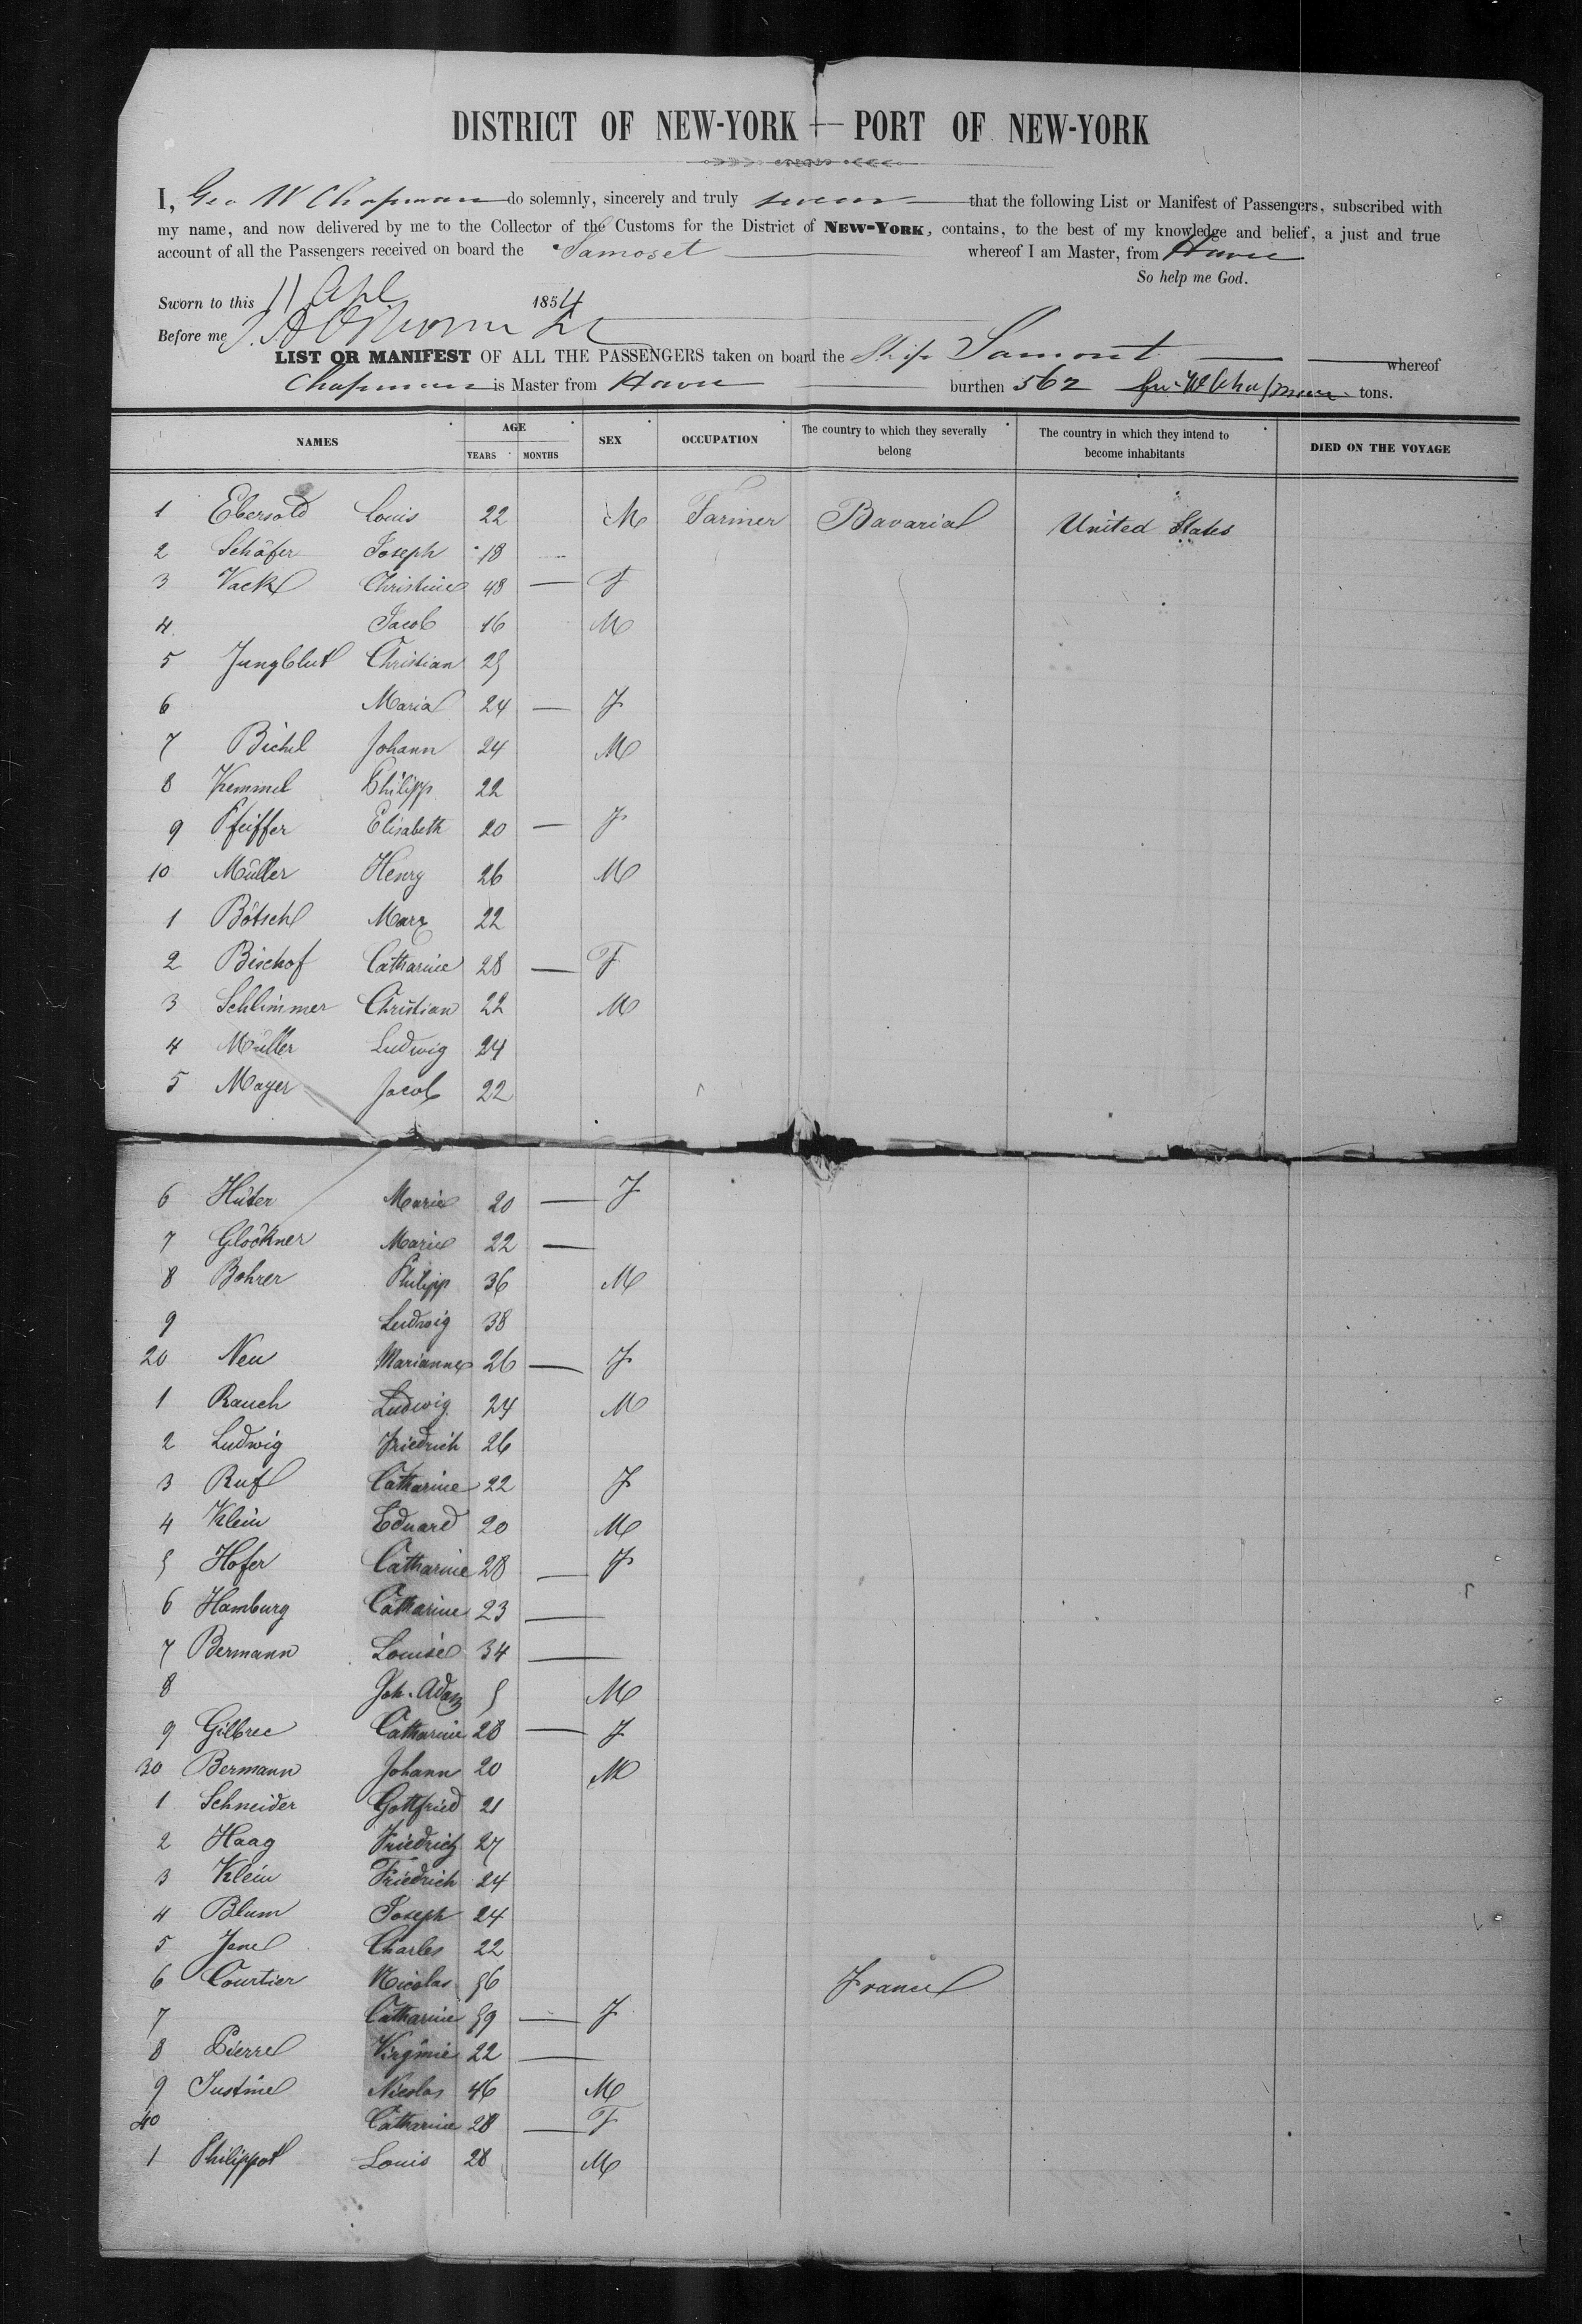 DISTRICT OF NEW-YORK — PORT OF NEW-YORK
I, Geo W Chapman do solemnly, sincerely and truly swear that the following List or Manifest of Passengers, subscribed with
my name, and now delivered by me to the Collector of the Customs for the District of NEW-YORK, contains, to the best of my knowledge and belief, a just and true
account of all the Passengers received on board the Samoset whereof I am Master, from Havre
So help me God.
Sworn to this 11 Apl 1854
Before me
LIST OR MANIFEST OF ALL THE PASSENGERS taken on board the Ship Samoset whereof
Chapman is Master from Havre burthen 562 Geo W Chapman tons.
NAMES AGE YEARS MONTHS SEX OCCUPATION The country to which they severally belong The country in which they intend to become inhabitants DIED ON THE VOYAGE
1 Ebersold Louis 22 M Farmer Bavaria United States
2 Schäfer Joseph 18
3 Vack Christine 48 — F
4 Jacob 16 M
5 Jungblut Christian 25
6 Maria 24 — F
7 Bichel Johann 24 M
8 Kemmel Philipp 22
9 Pfeiffer Elisabeth 20 — F
10 Müller Henry 26 M
1 Bötsch Marx 22
2 Bischof Catharine 28 — F
3 Schlimmer Christian 22 M
4 Müller Ludwig 24
5 Mayer Jacob 22
6 Hüter Marie 20 — F
7 Glöckner Marie 22 —
8 Bohrer Philipp 36 M
9 Ludwig 38
20 Neu Marianne 26 — F
1 Rauch Ludwig 24 M
2 Ludwig Friedrich 26
3 Ruf Catharine 22 F
4 Klein Eduard 20 M
5 Hofer Catharine 28 — F
6 Hamburg Catharine 23 —
7 Bermann Louise 34 —
8 Joh. Adam 5 M
9 Gilbree Catharine 28 — F
30 Bermann Johann 20 M
1 Schneider Gottfried 21
2 Haag Friedrich 27
3 Klein Friedrich 24
4 Blum Joseph 24
5 Jene Charles 22
6 Courtier Nicolas 56 France
7 Catharine 59 — F
8 Pierre Virginie 22 —
9 Justine Nicolas 46 M
40 Catharine 28 — F
1 Philippot Louis 28 M